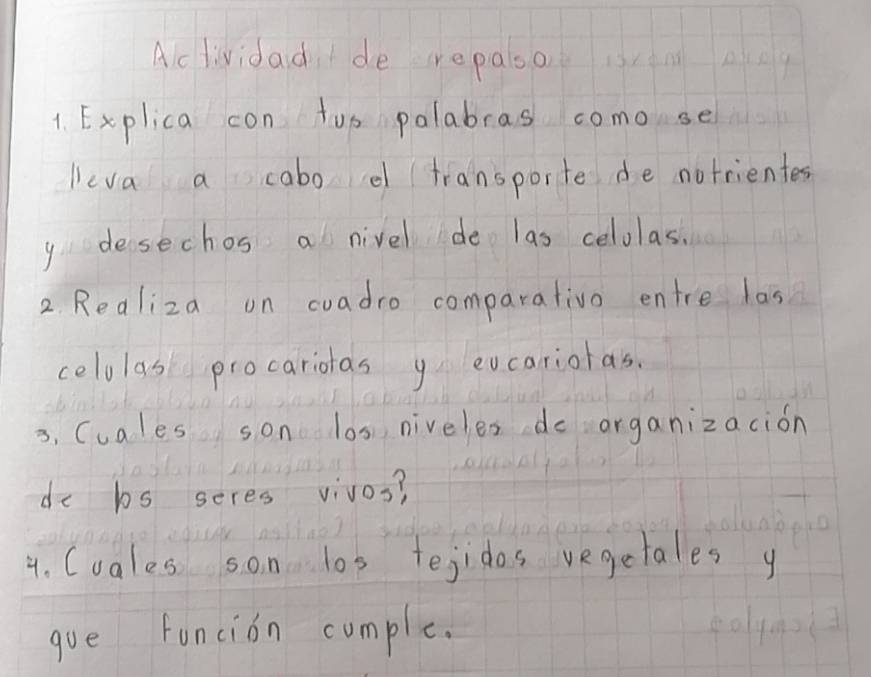 Actividad de repaso
1. Explica con tus palabras como se
lleva a cabo el transporte de notrientes
y desechos a nivel de las celolas.
2. Realiza un cuadro comparativo entre las
celulas procariotas y eucariotas.
3. Cuales son los niveles de organización
de los seres vivos?
4. Cuales son los tejidos vegetales y
que función cumple.